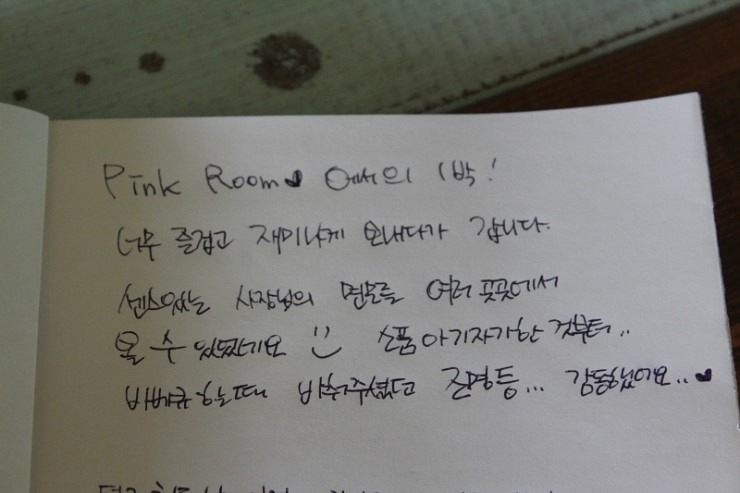 Pink Room♥ 에서의 1박!
너무 즐겁고 재미나게 보내다가 갑니다.
센스있는 사장님의 면모를 여러 곳곳에서
볼 수 있었던데요 :) 소품 아기자기한 것부터..
바베큐 하는데 비춰주셨던 조명등... 감동했어요..♥